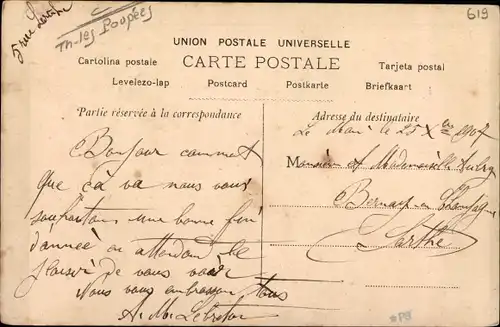 5 rue
m-les Poupées
619
UNION POSTALE UNIVERSELLE
CARTE POSTALE
Cartolina postale
Tarjeta postal
Levelezo-lap
Postcard
Postkarte
Briefkaart
Partie réservée à la correspondance
Adresse du destinataire
Le Mans le 25 Xbre 1907
Bonjour comment
que çà va nous vous
souhaitons une bonne fin
d'année en attendant le
plaisir de vous voir
Nous vous embrassons tous
A. M. Lebreton
Monsieur et Mademoiselle
Bernay en Champagne
Sarthe
*P8